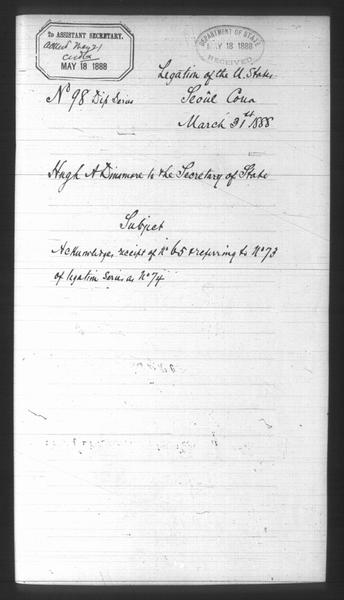 To ASSISTANT SECRETARY.
MAY 18 1888
DEPARTMENT OF STATE
MAY 18 1888
RECEIVED
Legation of the U. States
Nº 98 Dip Series
Seoul Corea
March 31st 1888
Hugh A Dinsmore to the Secretary of State
Subject
Acknowledges receipt of Nº 65 & referring to Nº 73
of legation Series as Nº 74